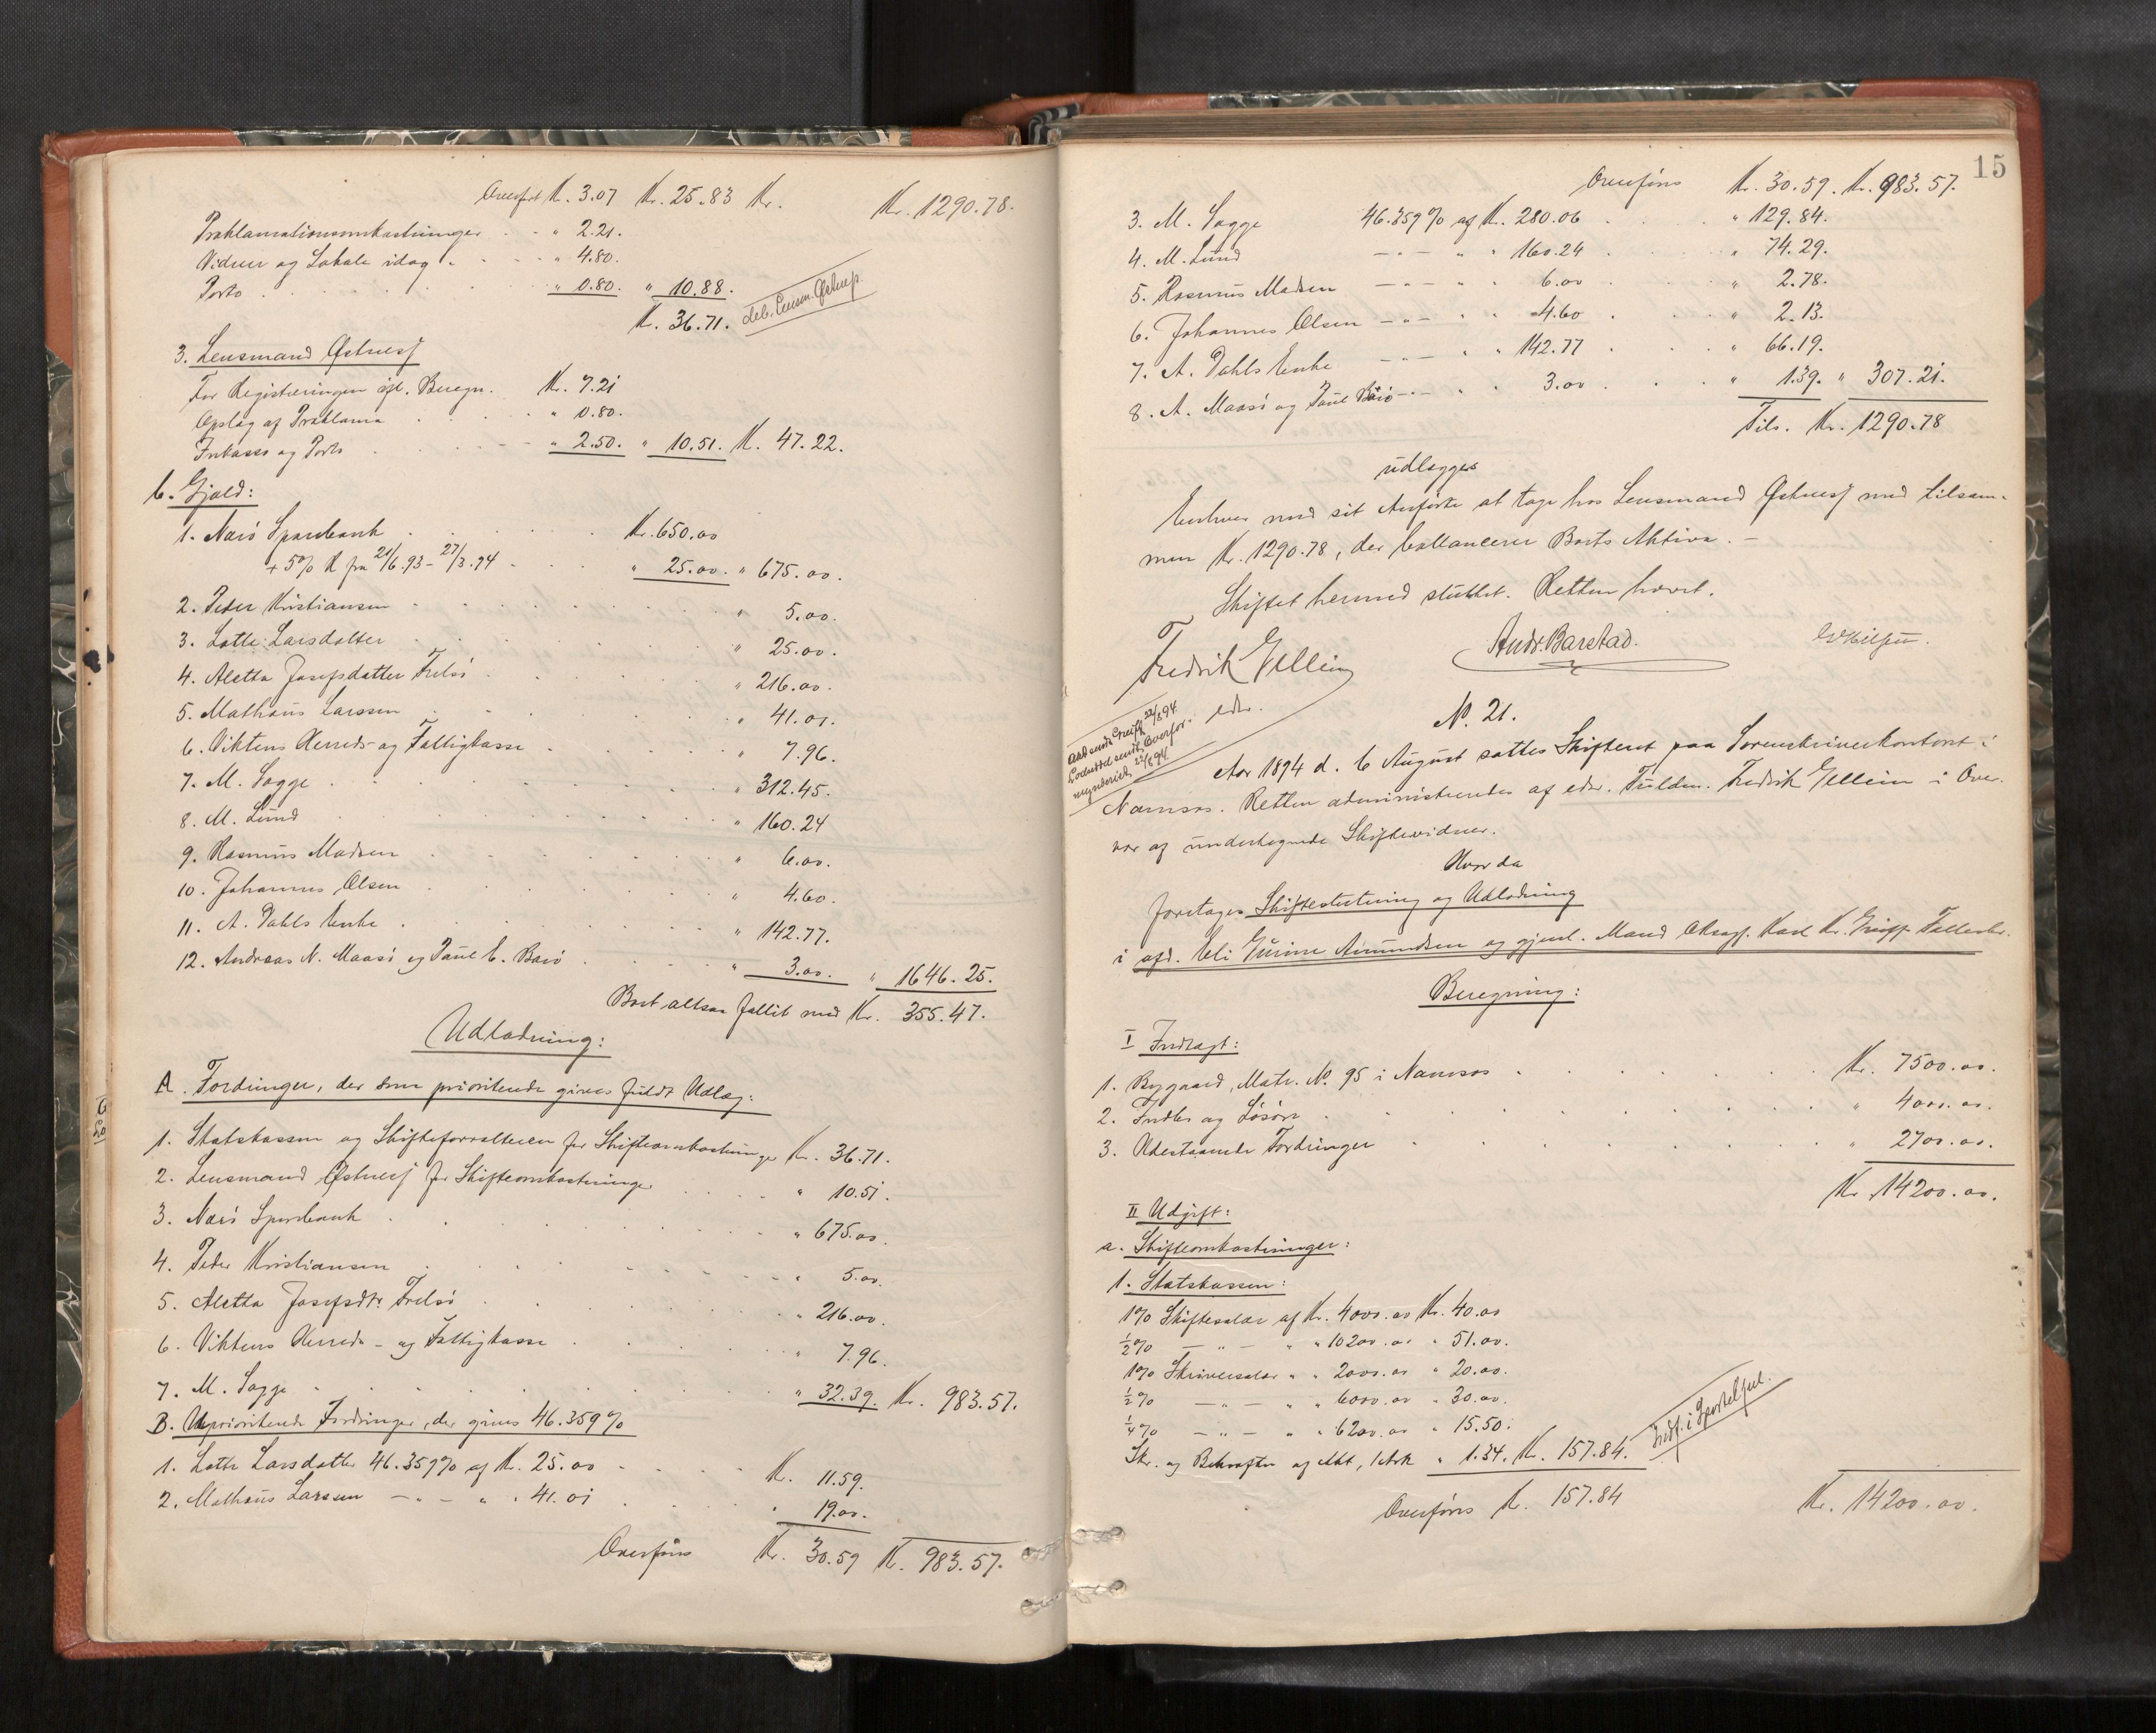 Overført Kr. 3.07 Kr. 25.83 Kr. Kr. 1290.78.
Proklamationsomkostninger " 2.21.
Vidner og Lokale idag " 4.80.
Porto " 0.80. " 10.88.
Kr. 36.71. deb. Lensm.
3. Lensmand
For Registreringen efl. Beregn. Kr. 7.21
Opslag af Proklama " 0.80.
Inkasso og Porto " 2.50. " 10.51. Kr. 47.22.
b. Gjæld:
1. Nærö Sparebank Kr. 650.00
+ 5% R fra 21/6.93 - 27/3.94 " 25.00. " 675.00.
2. Peder Kristiansen " 5.00.
3. Lotte Larsdatter " 25.00.
4. Aletta Josefsdatter Frelsö " 216.00.
5. Mathæus Larssen " 41.01.
6. Viktens Herreds- og Fattigkasse " 7.96.
7. M. Sagge " 312.45.
8. M. Lund " 160.24
9. Rasmus Madsen " 6.00.
10. Johannes Olsen " 4.60.
11. A. Dahls Enke " 142.77.
12. Andreas N. Maasö og Paul E. Barö " 3.00. " 1646.25.
Boet altsaa fallit med Kr. 355.47.
Udlodning:
A. Fordringer, der som prioriterede gives fuldt Udlæg:
1. Statskassen og Skifteforvalteren for Skifteomkostninger Kr. 36.71.
2. Lensmand for Skifteomkostninger " 10.51.
3. Nærö Sparebank " 675.00.
4. Peder Kristiansen " 5.00.
5. Aletta Josefsdtr. Frelsö " 216.00.
6. Viktens Herreds- og Fattigkasse " 7.96.
7. M. Sagge " 32.39. Kr. 983.57.
B. Uprioriterede Fordringer, der gives 46.359%
1. Lotte Larsdatter 46.359% af Kr. 25.00 Kr. 11.59.
2. Mathæus Larssen - " - " " 41.01 " 19.00.
Overføres Kr. 30.59 Kr. 983.57.
15
Overføres Kr. 30.59. Kr. 983.57.
3. M. Sagge 46.359% af Kr. 280.06 " 129.84.
4. M. Lund - " - " " 160.24 " 74.29.
5. Rasmus Madsen - " - " " 6.00 " 2.78.
6. Johannes Olsen - " - " " 4.60 " 2.13.
7. A. Dahls Enke - " - " " 142.77 " 66.19.
8. A. Maasö og Paul Barö - " - " " 3.00 " 1.39. " 307.21.
Tils. Kr. 1290.78
udlægges
Enhver med sit Anførte at tage hos Lensmand med tilsam-
men Kr. 1290.78, der ballancerer Boets Aktiva. -
Skiftet hermed sluttet. Retten hævet.
Fredrik Gellein Andr. Barstad.
edsv.
No. 21.
Aar 1894 d. 6 August sattes Skifteret paa Sorenskriverkontoret i
Namsos. Retten administreredes af edsv. Fuldm. Fredrik Gellein i Over-
vær af undertegnede Skiftevidner.
Hvor da
foretages Skifteslutning og Udlodning
i afd. Eli Gurine Amundsen og gjenl. Mand Karl Kr. Fællesbo.
Beregning:
I Indtægt:
1. Bygaard, Matr. No. 95 i Namsos Kr. 7500.00.
2. Indbo og Løsøre " 4000.00.
3. Udestaaende Fordringer " 2700.00.
Kr. 14200.00.
II Udgift:
a. Skifteomkostninger:
1. Statskassen:
1% Skiftesalær af Kr. 4000.00 Kr. 40.00
½% - " - " " 10200.00 " 51.00.
1% Skriversalær " " 2000.00 " 20.00.
½% - " - " " 6000.00 " 30.00.
¼% - " - " " 6200.00 " 15.50.
Skr. og Bekræftn. og Akt, 1 Ark " 1.34. Kr. 157.84. Indf. i Sporteljnl.
Overføres Kr. 157.84 Kr. 14200.00.